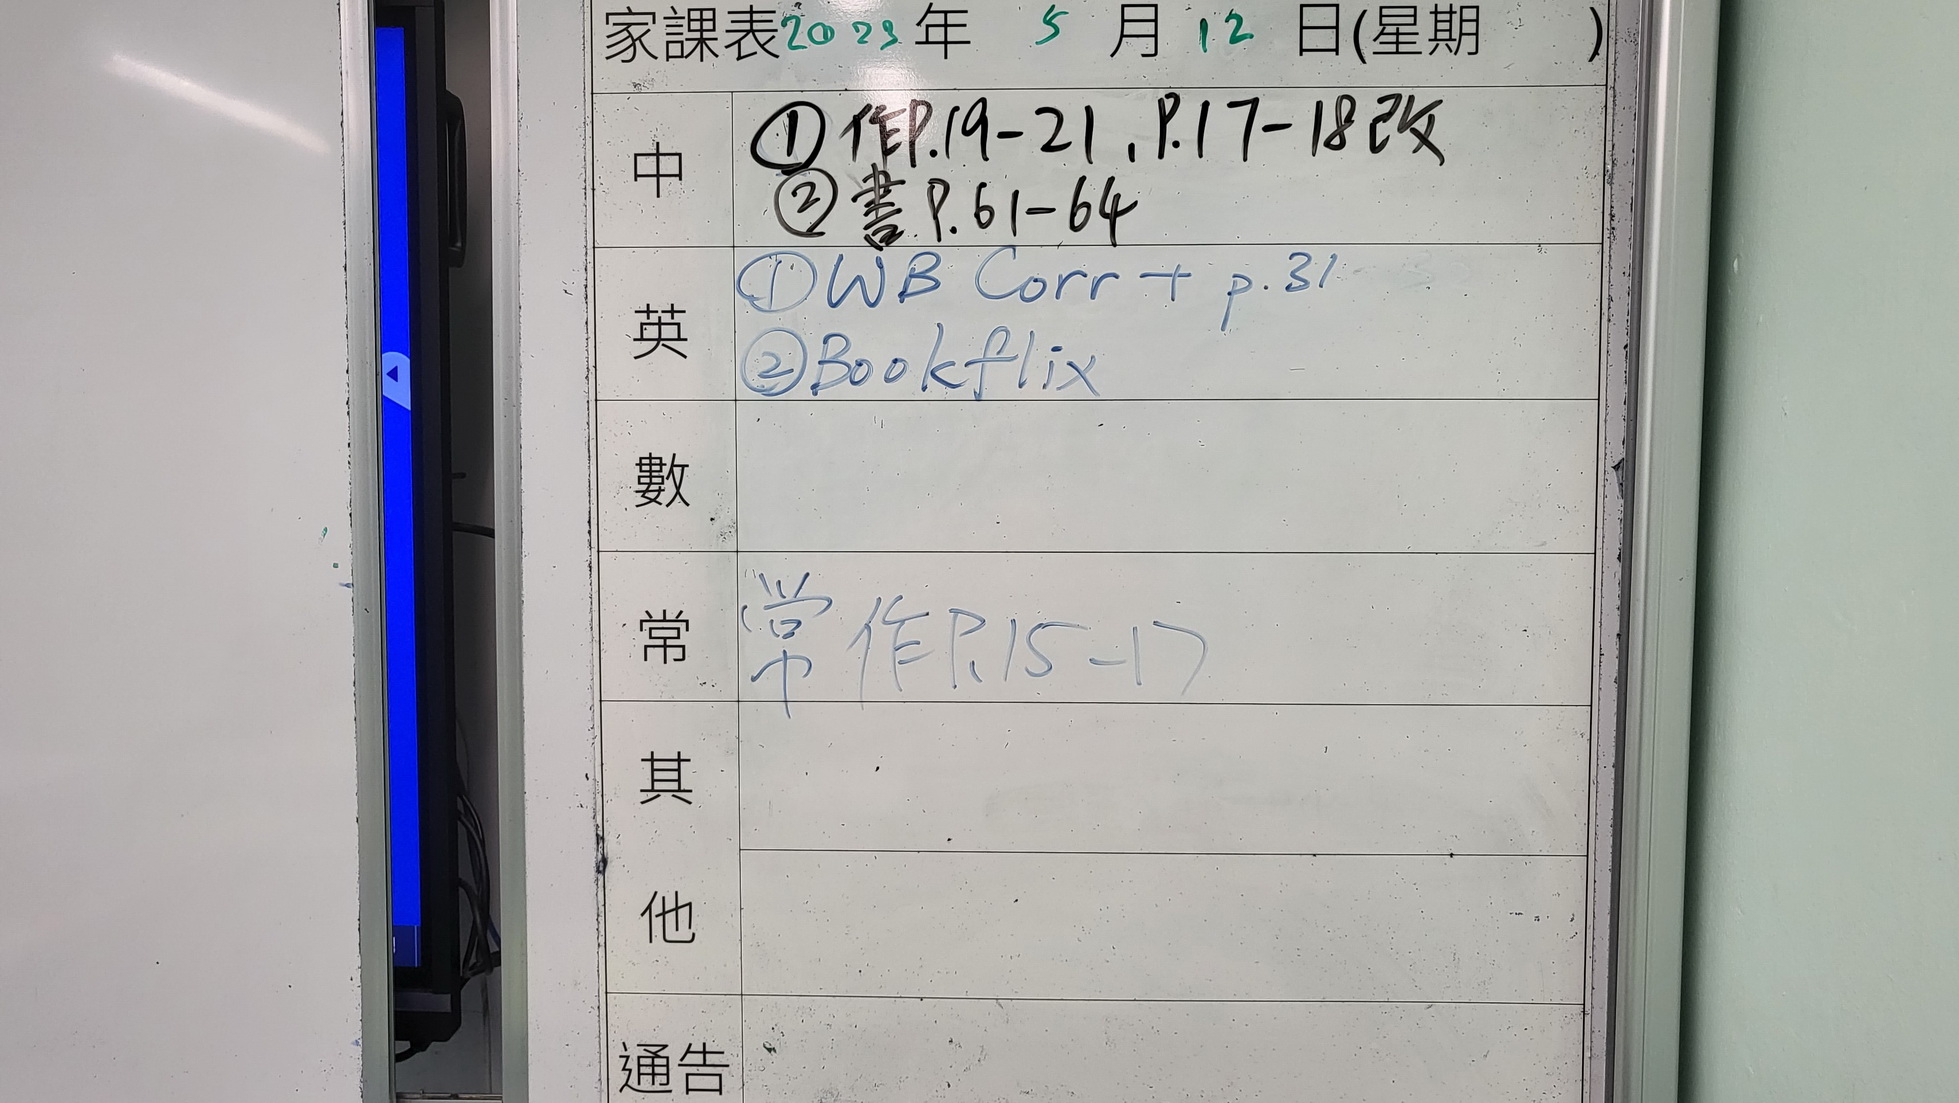 家課表2023年 5 月 12 日(星期 )
中
①作P.19-21, P.17-18改
②書P.61-64
英
①WB Corr + p.31
②Bookflix
數
常
常作P.15-17
其
他
通告